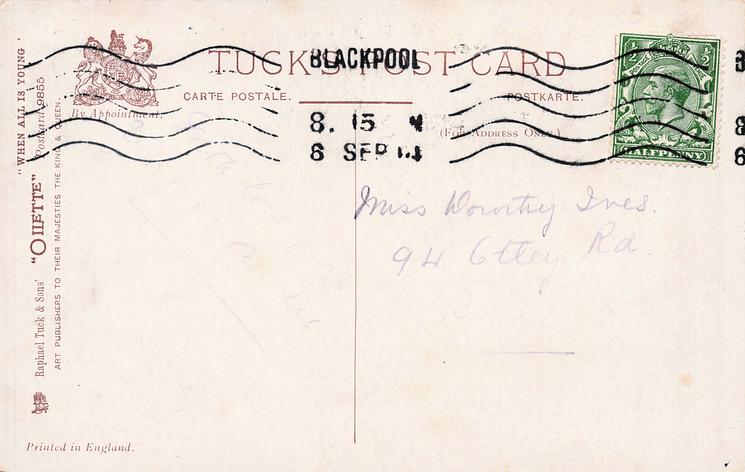 TUCK'S POST CARD
BLACKPOOL
CARTE POSTALE.
POSTKARTE.
By Appointment.
(FOR ADDRESS ONLY.)
8. 15
6 SEP
½ ½
HALFPENNY
Miss Dorothy Ives.
94 Otley Rd.
"WHEN ALL IS YOUNG"
Postcard 9855
"OILETTE"
Raphael Tuck & Sons'
ART PUBLISHERS TO THEIR MAJESTIES THE KING & QUEEN.
Printed in England.